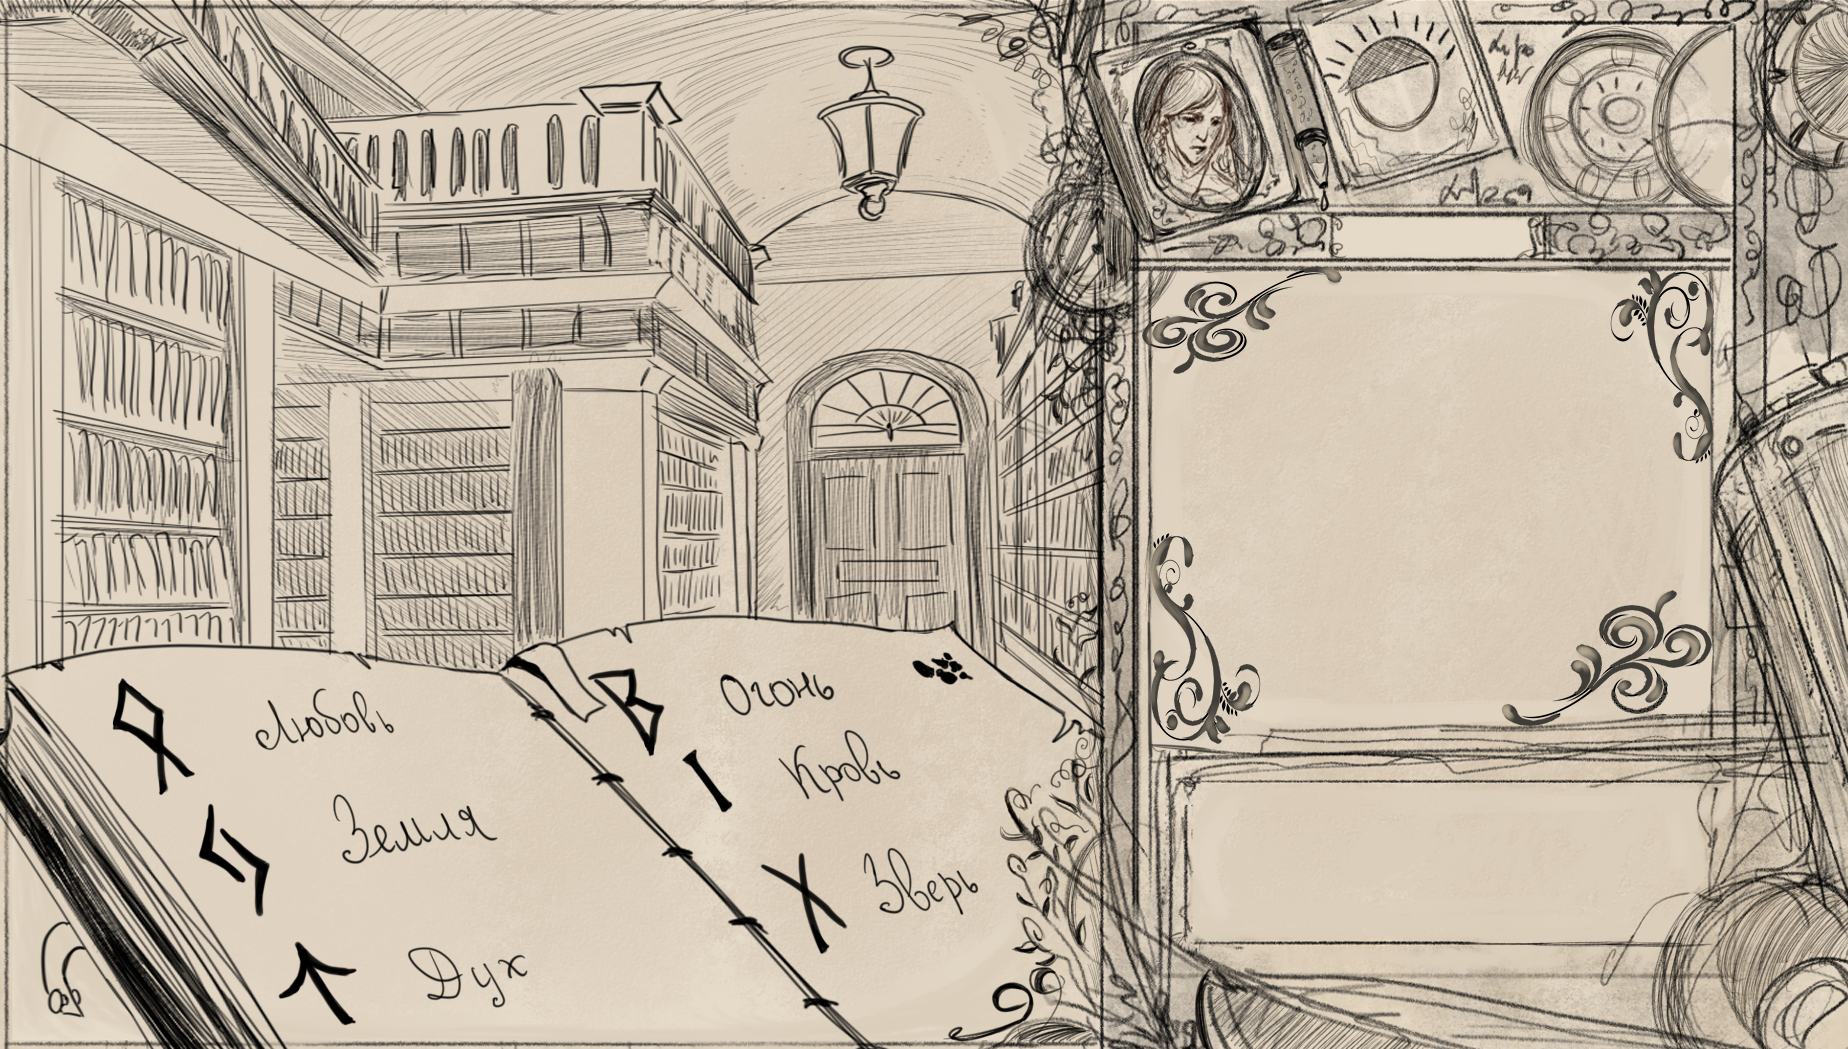 ᛟ Любовь
ᛃ Земля
ᛏ Дух
ᛒ Огонь
ᛁ Кровь
ᚷ Зверь